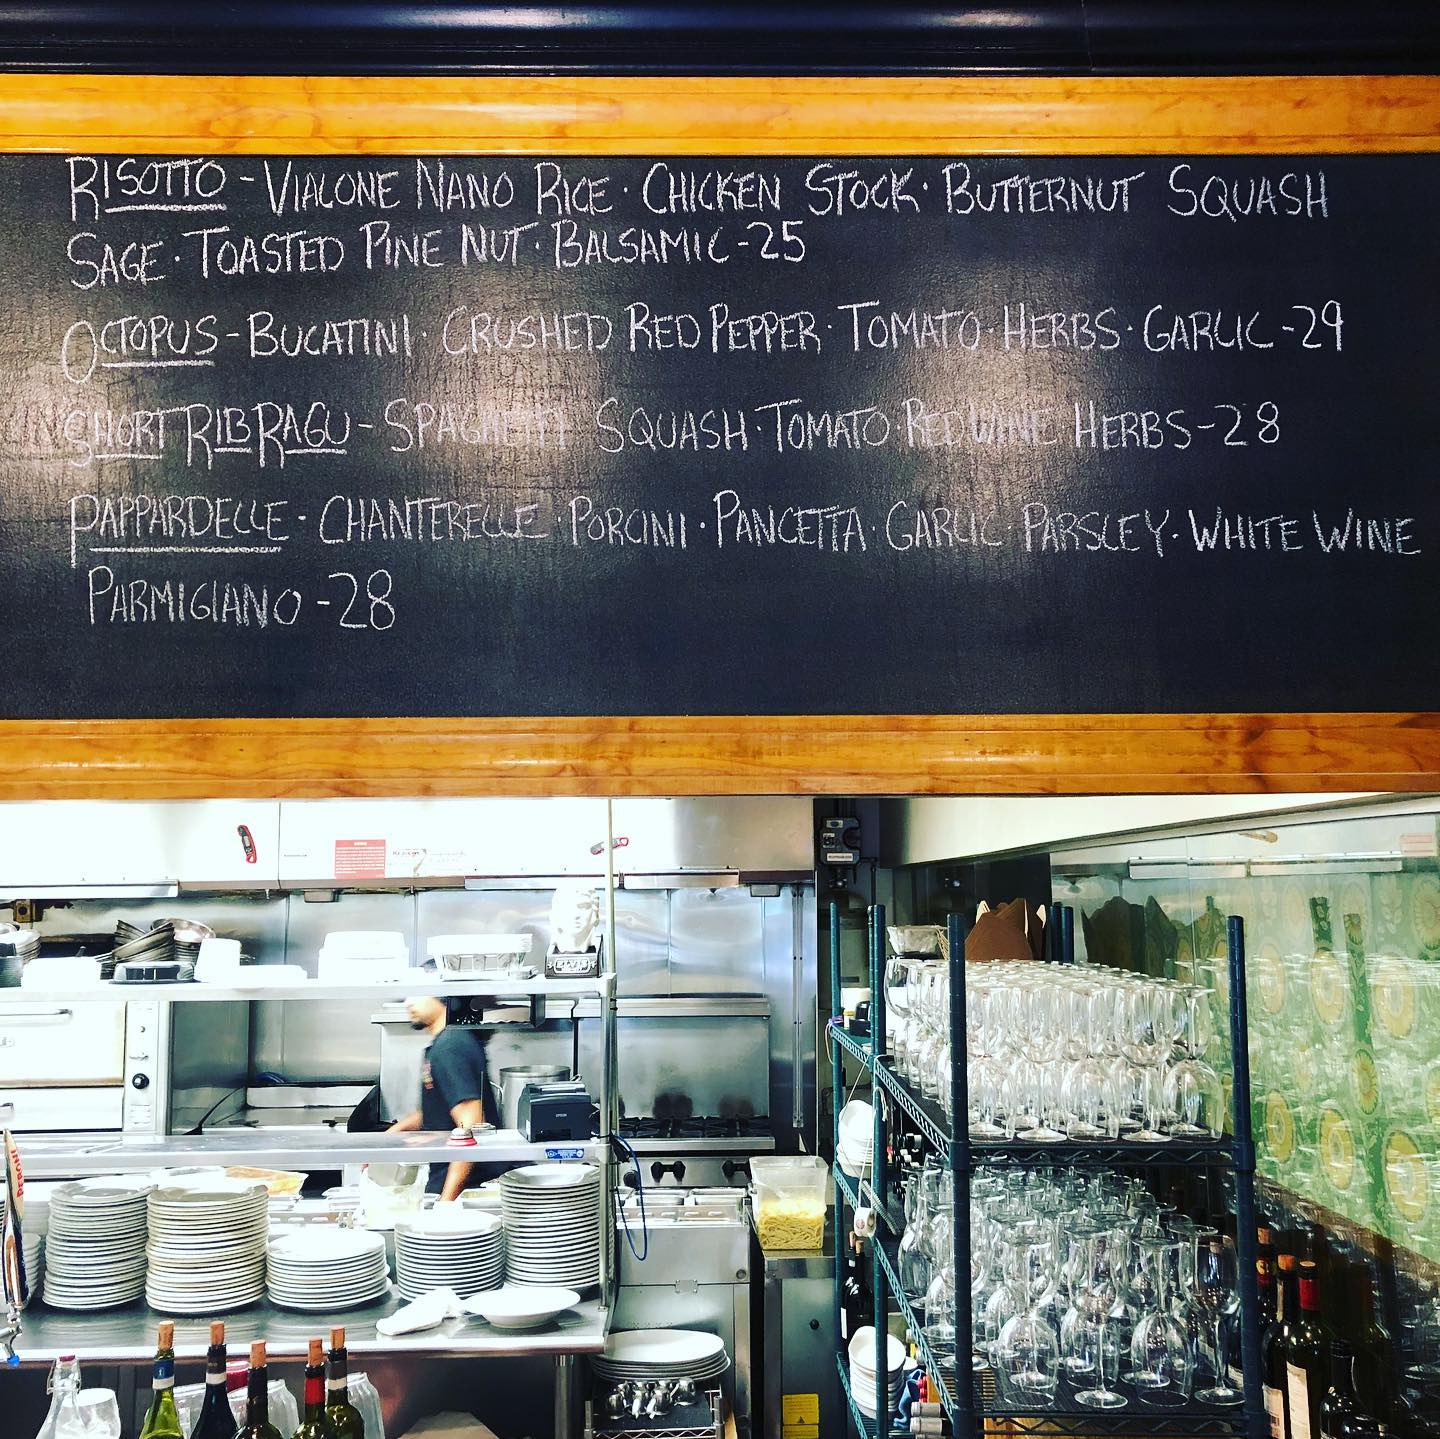 RISOTTO - VIALONE NANO RICE · CHICKEN STOCK · BUTTERNUT SQUASH
SAGE · TOASTED PINE NUT · BALSAMIC -25
OCTOPUS - BUCATINI · CRUSHED RED PEPPER · TOMATO · HERBS · GARLIC -29
SHORT RIB RAGU - SPAGHETTI SQUASH · TOMATO · RED WINE HERBS -28
PAPPARDELLE - CHANTERELLE · PORCINI · PANCETTA · GARLIC PARSLEY · WHITE WINE
PARMIGIANO -28
ELVIS
EPSON
PERONI